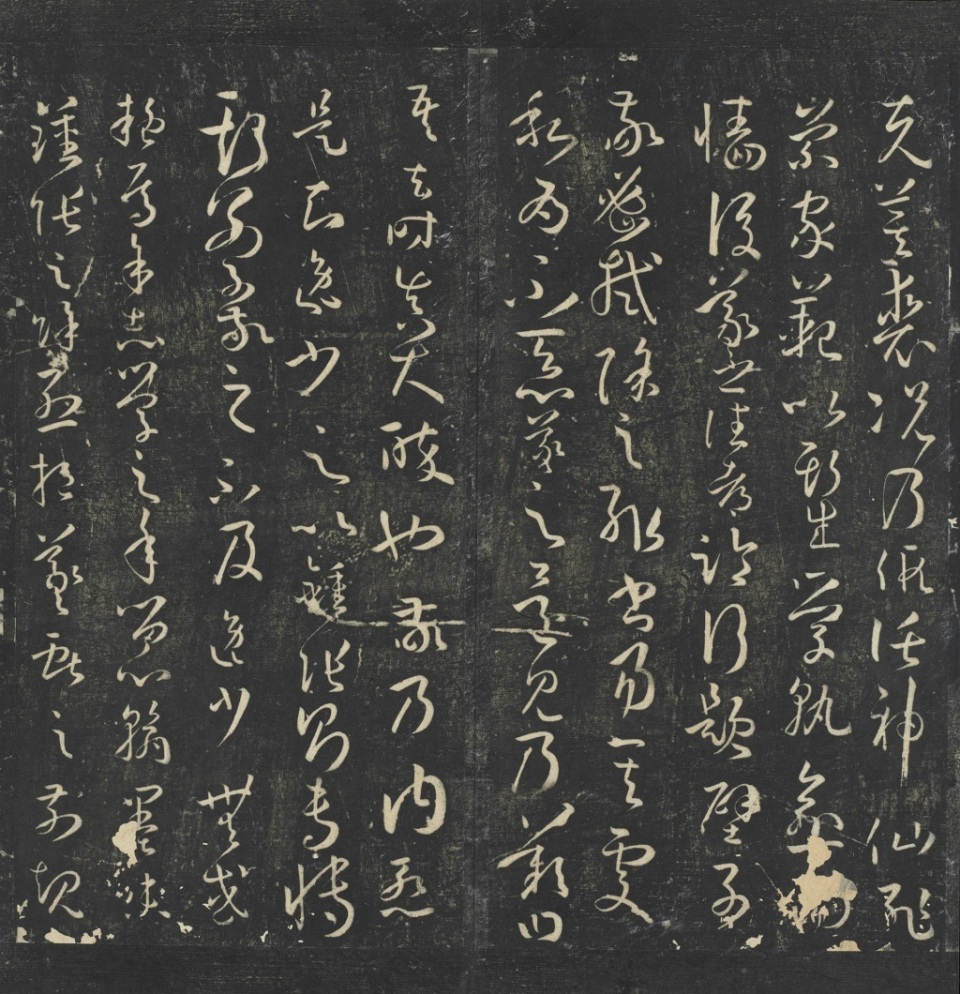 克箕裘況乃假託神仙恥
崇家範以斯成學孰愈面
牆後羲之往都臨行題壁子
敬密拭除之輒書易其處
私為不惡羲之還見乃歎曰
吾去時真大醉也敬乃內慚
是知逸少之比鍾張則專博
斯別子敬之不及逸少無或
疑焉余志學之年留心翰墨味
鍾張之餘烈挹羲獻之前規